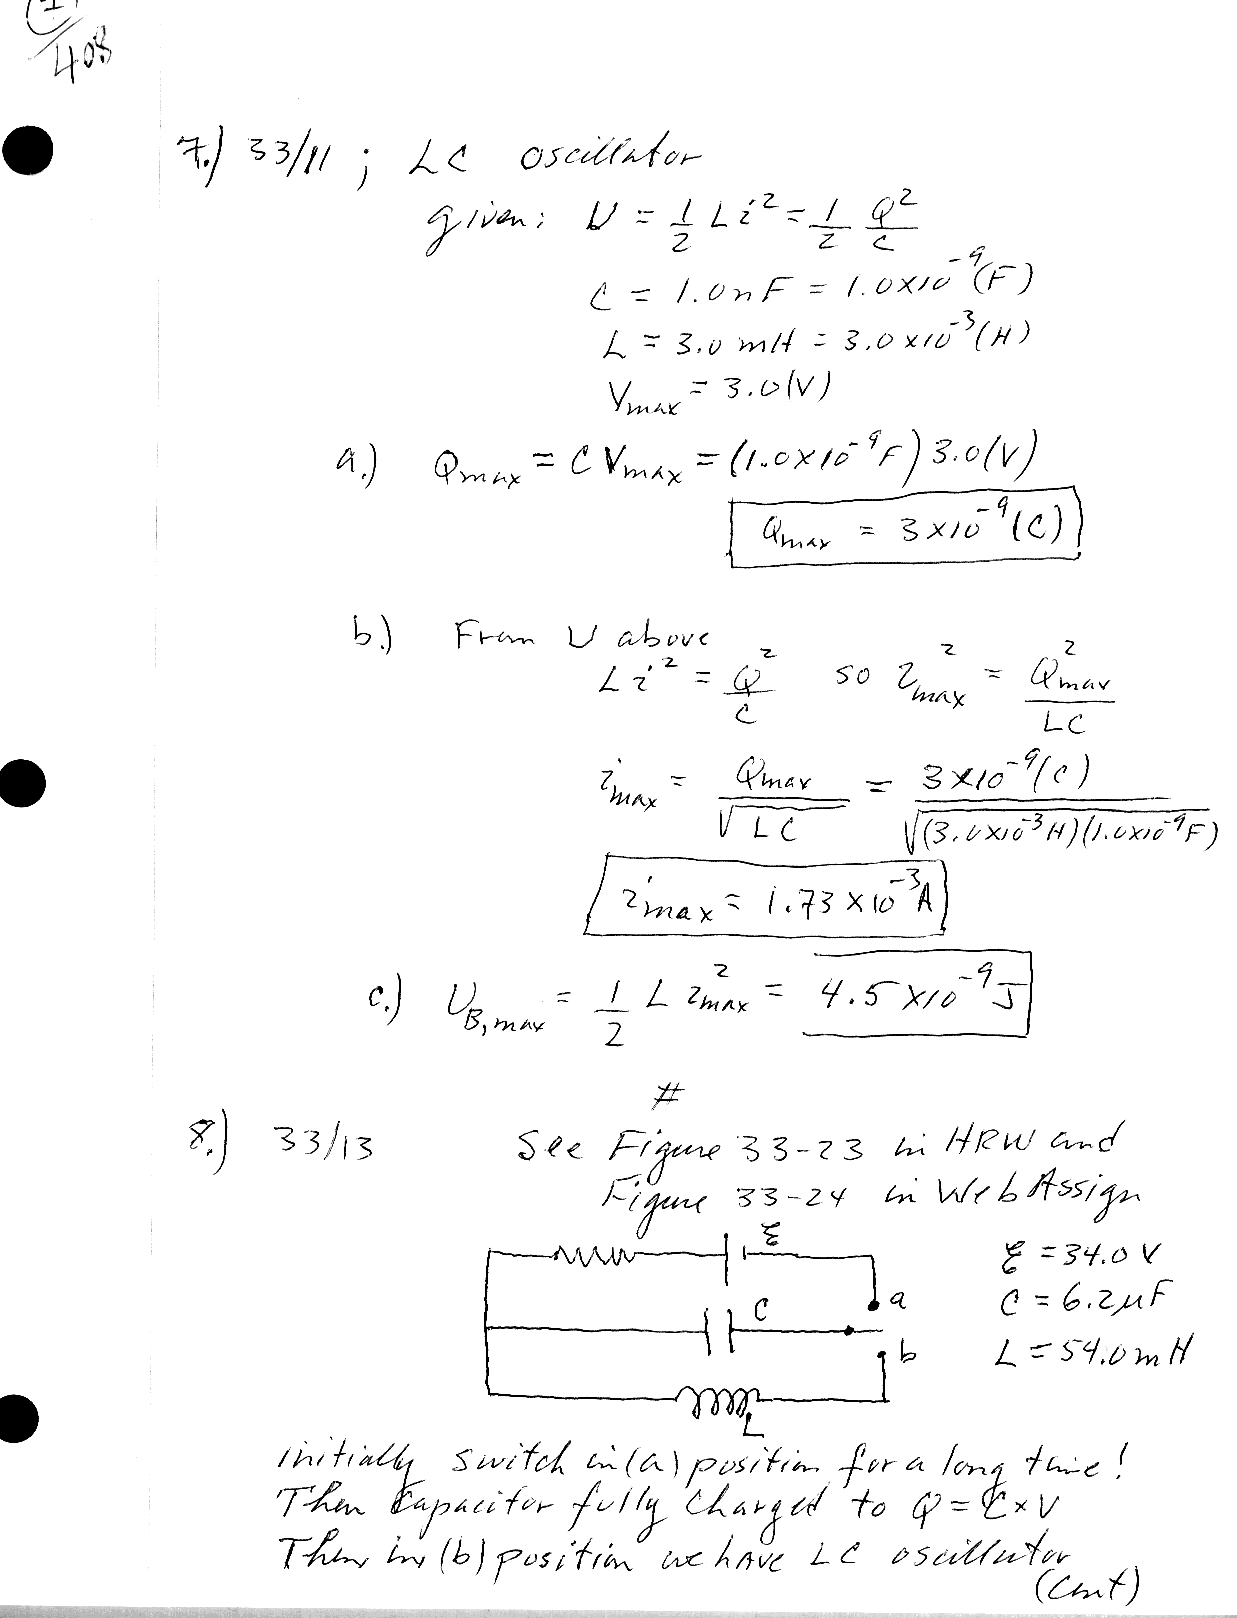 408
7.) 33/11 ; LC oscillator
given: U = 1/2 L i² = 1/2 Q²/C
C = 1.0 nF = 1.0×10⁻⁹ (F)
L = 3.0 mH = 3.0×10⁻³ (H)
Vmax = 3.0 (V)
a.) Qmax = C Vmax = (1.0×10⁻⁹ F) 3.0 (V)
Qmax = 3×10⁻⁹ (C)
b.) From U above
L i² = Q²/C so i²max = Q²max/LC
imax = Qmax/√LC = 3×10⁻⁹ (C)/√(3.0×10⁻³ H)(1.0×10⁻⁹ F)
imax = 1.73×10⁻³ A
c.) U_B,max = 1/2 L i²max = 4.5×10⁻⁹ J
#
8.) 33/13 See Figure 33-23 in HRW and
Figure 33-24 in WebAssign
ℰ
ℰ = 34.0 V
a
C
C = 6.2 μF
b
L = 54.0 mH
L
initially switch in (a) position for a long time!
Then Capacitor fully charged to Q = C×V
Then in (b) position we have LC oscillator
(cont)